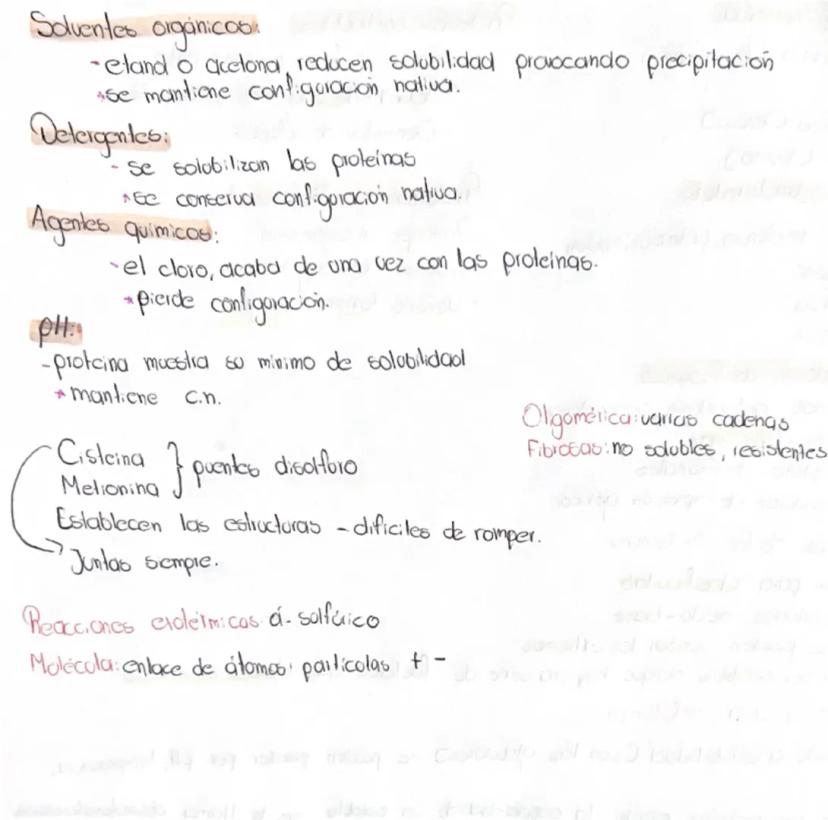 Solventes orgánicos:
- etanol o acetona, reducen solubilidad provocando precipitación
*se mantiene configuración nativa.
Detergentes:
- se solubilizan las proteínas
*se conserva configuración nativa.
Agentes químicos:
- el cloro, acaba de una vez con las proteínas.
*pierde configuración.
pH:
- proteina muestra su mínimo de solubilidad
*mantiene c.n.
Oligomérica: varias cadenas
Fibrosas: no solubles, resistentes
Cisteina
Metionina } puentes disolfuro
Establecen las estructuras - dificiles de romper.
Juntas siempre.
Reacciones exotérmicas: á. solfúrico
Molécula: enlace de átomos. partículas + -